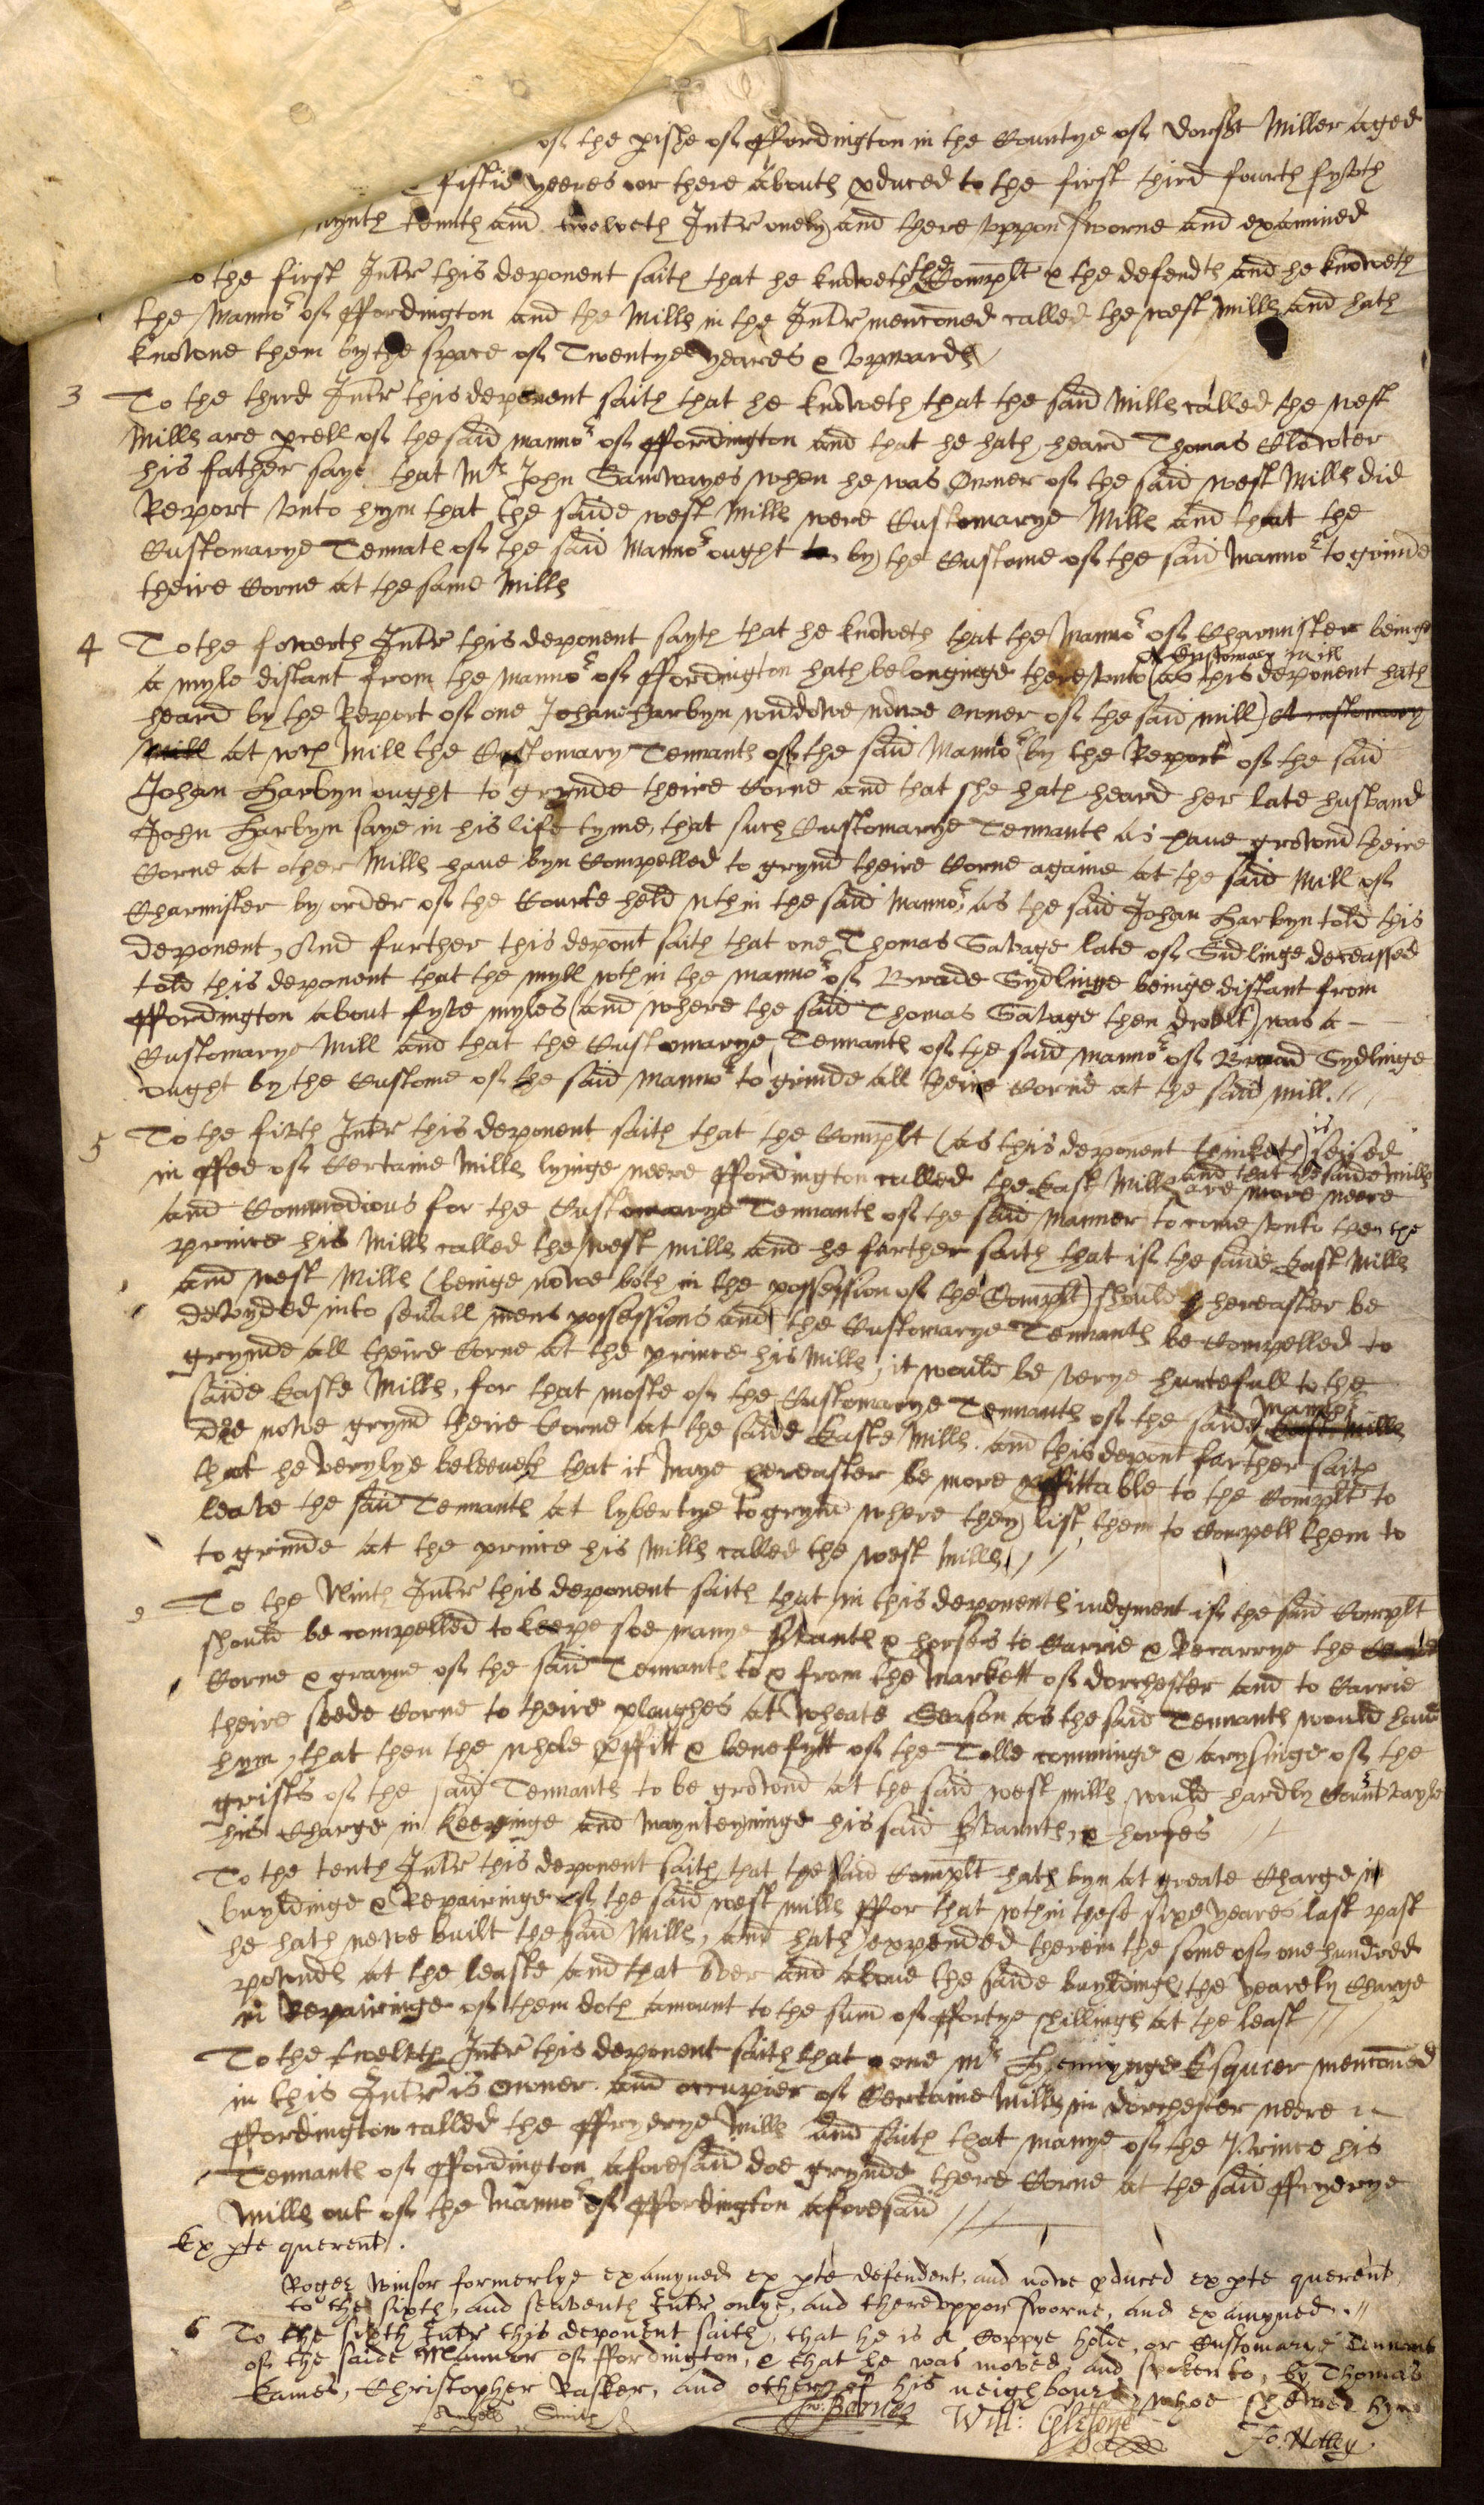 of the pishe of ffordington in the Countye of Dorset Miller aged
fiftie yeeres or there abouts pduced to the first third fourth fyveth
nynth tennth and twelveth Intr onely and there uppon sworne and examined
o the first Intr this deponent saith that he knoweth the Complt & the defendts and he knoweth
the Mannor of ffordington and the Mills in the Intr menconed called the west Mills and hath
knowne them by the space of Twentye yeares & upwards
3 To the third Intr this deponent saith that he knoweth that the said Mills called the west
Mills are pcell of the said mannor of ffordington and that he hath heard Thomas Clowter
his father saye that Mr John Samwayes when he was Owner of the said west Mills did
Report unto hym that the saide west Mills were Customarye Mills and that the
Customarye Tennats of the said Mannor ought to by the Custome of the said Mannor to grinde
theire Corne at the same Mills
4 To the fowerth Intr this deponent sayth that he knoweth that the Mannor of Charmister beinge
a Customary Mill
a myle distant from the Mannor of ffordington hath belonginge there unto (as this deponent hath
heard by the Report of one Johan Harbyn widdowe nowe owner of the said mill) A customary
Mill at wch Mill the Customary Tennants of the said Mannor by the Report of the said
Johan Harbyn ought to grynde theire Corne and that she hath heard her late husband
John Harbyn saye in his life tyme, that such Customarye Tennants as have grownd theire
Corne at other Mills have byn Compelled to grynd theire Corne againe at the said Mill of
Charmister by order of the Courte held wthin the said Mannor, as the said Johan Harbyn told this
deponent, And further this depont saith that one Thomas Savage late of Sidlinge deceassed
told this deponent that the myll wthin the mannor of Brode Sydlinge beinge distant from
ffordington about fyve myles (and where the said Thomas Savage then dwelt) was a
Customarye Mill and that the Customarye Tennants of the said mannor of Broad Sydlinge
ought by the Custome of the said Mannor to grinde all theire Corne at the said mill.
5 To the fivth Intr this deponent saith that the Complt (as this deponent thinketh) is seised
in ffee of Certaine Mills lyinge neere ffordington called the East Mills and that the saide mills are more neere
and Commodious for the Customarye Tennants of the said Manner to come unto then the
prince his Mills called the west mills and he farther saith that if the saide East Mills
and west Mills (beinge nowe both in the possession of the Complt) should hereafter be
devyded into sevall mens possessions and the Customarye Tennants be Compelled to
grynde all theire Corne at the prince his Mills, it would be verye hurtefull to the
saide Easte Mills, for that moste of the Customarye Tennants of the saide Mannor East Mills
doe nowe grynd theire Corne at the saide Easte Mills. and this depont farther saith
that he verylye beleeveth that it maye hereafter be more pffittable to the Complt to
leave the said Tennants at lybertye to grynd where they list, then to Compell them to
to grinde at the prince his Mills called the west Mills
9 To the Ninth Intr this deponent saith that in this deponents iudgment if the said Complt
should be compelled to keepe soe manye srvants & horses to Carrie & Recarrye the Corne
Corne & grayne of the said Tennants to & from the Markett of dorchester and to Carrie
theire seede Corne to theire ploughes at wheate Season as the said Tennants would have
hym, that then the whole pffitt & benefytt of the Tolle comminge & arysinge of the
grists of the said Tennants to be grownd at the said west mills would hardly Countrvayle
his Charge in keepinge and maynteyninge his said srvannts & horses
To the tenth Intr this deponent saith that the said Complt hath byn at greate Charge in
buyldinge & Repairinge of the said west mills ffor that wthin these sixe yeares last past
he hath newe built the said Mills, and hath expended therein the some of one hundred
pownds at the leaste and that over and above the saide buyldings the yearely Charge
in Repairinge of them doth amount to the sum of ffortye shillings at the least
To the twelvth Intr this deponent saith that one Mr Hemynge Esquier menconed
in this Intr is Owner and occupier of Certaine Mills in Dorchester neere
ffordington called the ffryerye Mills and saith that manye of the Prince his
Tennants of ffordington aforesaid doe grynde there Corne at the said ffryerye
Mills out of the Mannor of ffordington aforesaid
Ex pte querent.
Roger Winsor formerlye examyned ex pte defendent, and nowe pduced ex pte querent
to the sixth, and seaventh Intr onlye, and thereuppon sworne, and examyned.
6 To the sixth Intr this deponent saith, that he is a Coppye holde, or Customarie Tennant
of the saide Mannor of ffordington, & that he was moved, and spoken to, by Thomas
Eames, Christopher Rasker, and others of his neighbours, whoe shewed hym
Angell Smith Jo: Barnes Will: Jo: Notley